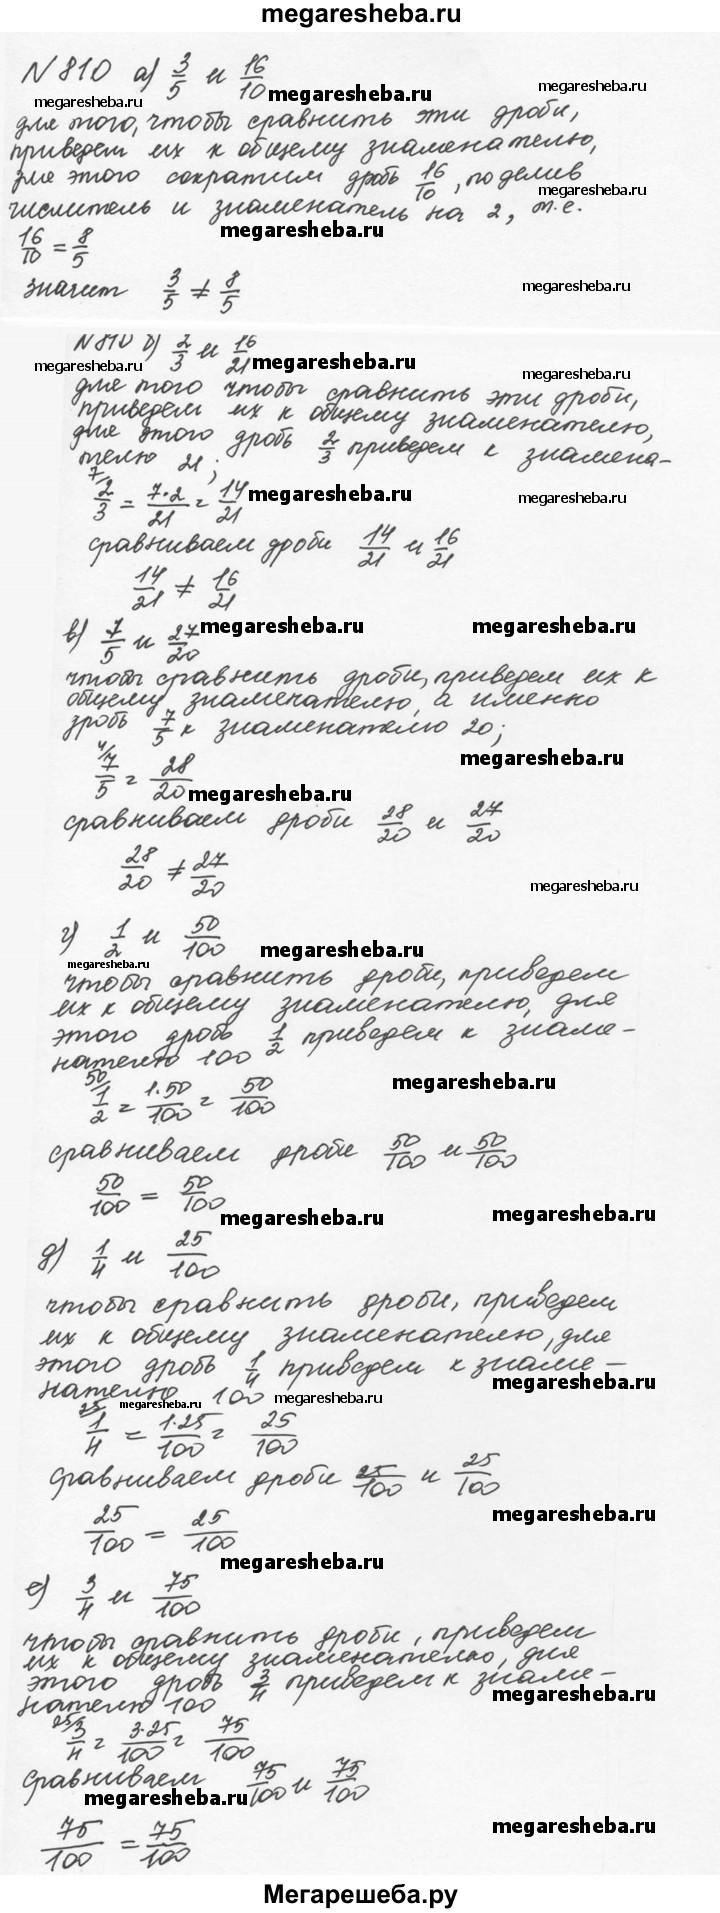 megaresheba.ru
N 810 а) 3/5 и 16/10
megaresheba.ru megaresheba.ru megaresheba.ru
для того, чтобы сравнить эти дроби,
приведем их к общему знаменателю,
для этого сократим дробь 16/10, поделив
megaresheba.ru
числитель и знаменатель на 2, т.е.
16/10 = 8/5
megaresheba.ru
значит 3/5 ≠ 8/5
megaresheba.ru
N 810 б) 2/3 и 16/21
megaresheba.ru megaresheba.ru megaresheba.ru
для того чтобы сравнить эти дроби,
приведем их к общему знаменателю,
для этого дробь 2/3 приведем к знамена-
телю 21;
7/ 2/3 = 7·2/21 = 14/21
megaresheba.ru megaresheba.ru
сравниваем дроби 14/21 и 16/21
14/21 ≠ 16/21
в) 7/5 и 27/20
megaresheba.ru megaresheba.ru
чтобы сравнить дроби, приведем их к
общему знаменателю, а именно
дробь 7/5 к знаменателю 20;
4/ 7/5 = 28/20
megaresheba.ru
megaresheba.ru
сравниваем дроби 28/20 и 27/20
28/20 ≠ 27/20
megaresheba.ru
г) 1/2 и 50/100
megaresheba.ru
megaresheba.ru
чтобы сравнить дроби, приведем
их к общему знаменателю, для
этого дробь 1/2 приведем к знаме-
нателю 100
50/ 1/2 = 1·50/100 = 50/100
megaresheba.ru
сравниваем дроби 50/100 и 50/100
50/100 = 50/100
megaresheba.ru megaresheba.ru
д) 1/4 и 25/100
чтобы сравнить дроби, приведем
их к общему знаменателю, для
этого дробь 1/4 приведем к знаме-
megaresheba.ru
нателю 100
megaresheba.ru megaresheba.ru
25/ 1/4 = 1·25/100 = 25/100
сравниваем дроби 25/100 и 25/100
megaresheba.ru
25/100 = 25/100
megaresheba.ru
е) 3/4 и 75/100
чтобы сравнить дроби, приведем
их к общему знаменателю, для
этого дробь 3/4 приведем к знаме-
megaresheba.ru
нателю 100
25/ 3/4 = 3·25/100 = 75/100
сравниваем 75/100 и 75/100
megaresheba.ru
75/100 = 75/100
megaresheba.ru
Мегарешеба.ру